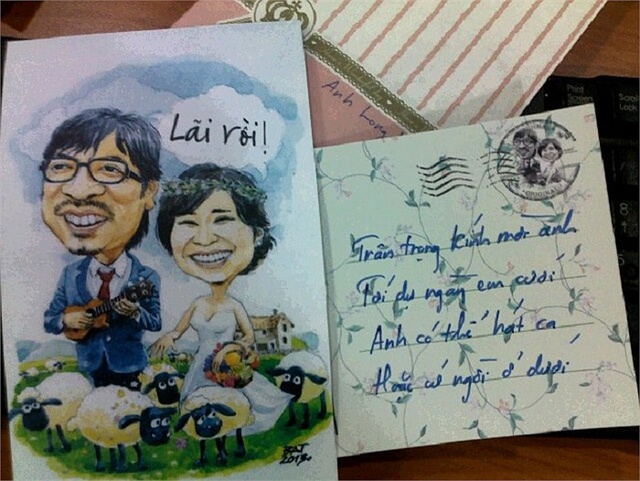 Lãi rồi!
BAT
2013
Anh Long
Trân trọng kính mời anh
Tới dự ngày em cưới
Anh có thể hát ca
Hoặc cứ ngồi ở dưới
Print
Screen
Scroll
Lock